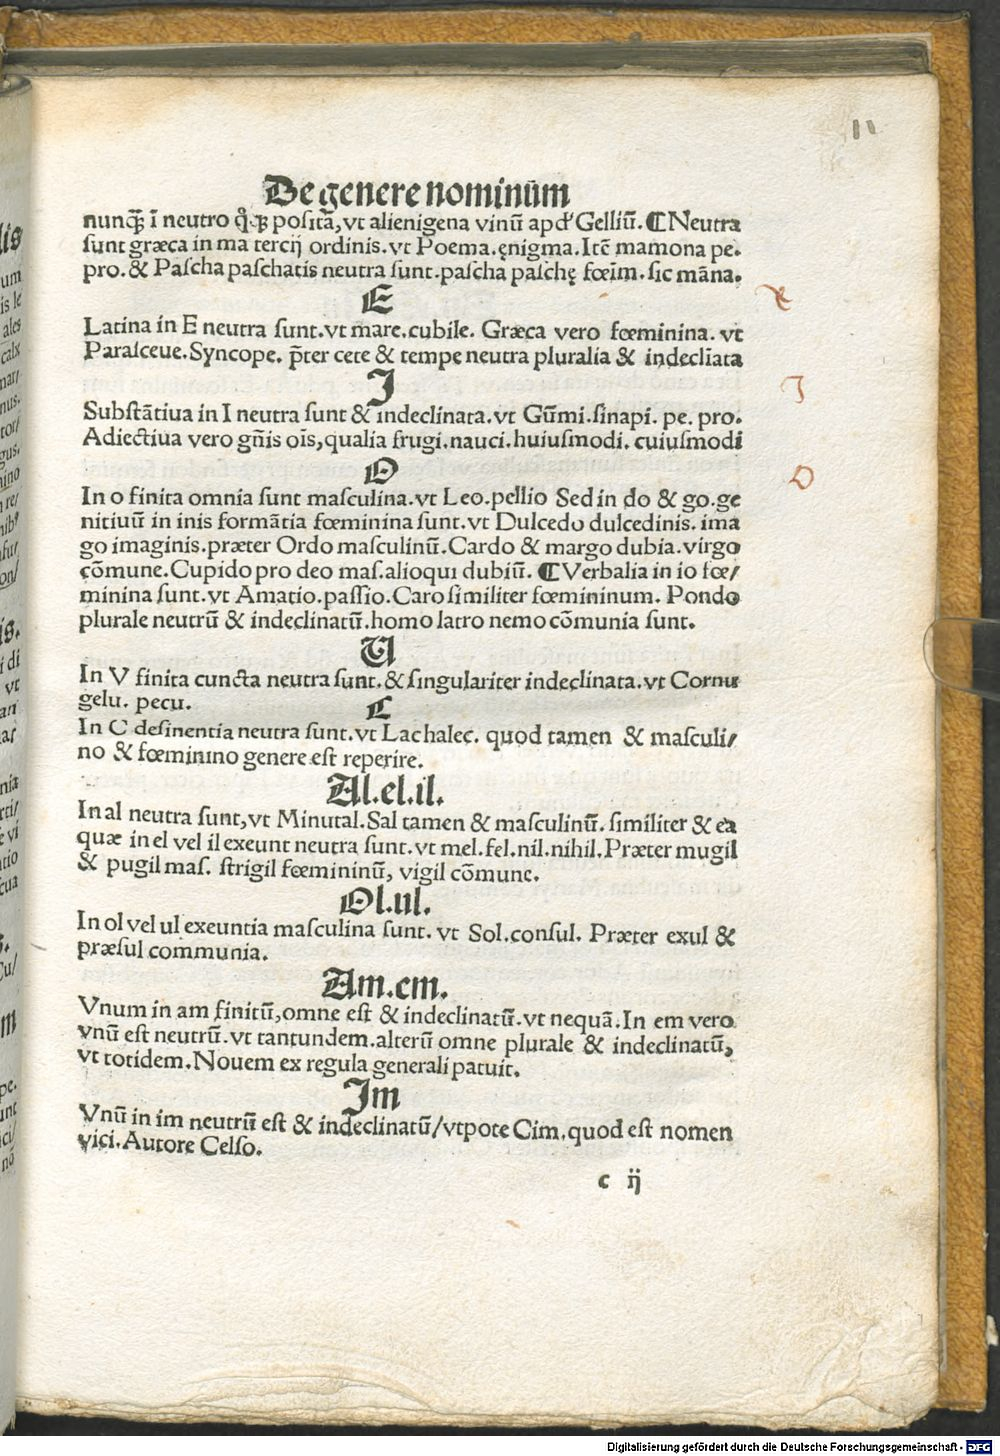 11
De genere nominūm
nunq̃ȝ ī neutro q̊q̃ȝ positā, vt alienigena vinū apd' Gelliū. ¶ Neutra
sunt græca in ma tercij ordinis. vt Poema. ęnigma. Itē mamona pe.
pro. & Pascha paschatis neutra sunt. pascha paschę fœim. sic māna.
E
Latina in E neutra sunt. vt mare. cubile. Græca vero fœminina. vt
Parasceue. Syncope. p̄ter cete & tempe neutra pluralia & indecliata
I
Substātiua in I neutra sunt & indeclinata. vt Gūmi. sinapi. pe. pro.
Adiectiua vero gn̄is ois̄, qualia frugi. nauci. huiusmodi. cuiusmodi
O
In o finita omnia sunt masculina. vt Leo. pellio Sed in do & go. ge
nitiuū in inis formātia fœminina sunt. vt Dulcedo dulcedinis. ima
go imaginis. præter Ordo masculinū. Cardo & margo dubia. virgo
cōmune. Cupido pro deo mas. alioqui dubiū. ¶ Verbalia in io fœ/
minina sunt. vt Amatio. passio. Caro similiter fœmininum. Pondo
plurale neutrū & indeclinatū. homo latro nemo cōmunia sunt.
U
In V finita cuncta neutra sunt. & singulariter indeclinata. vt Cornu
gelu. pecu.
C
In C desinentia neutra sunt. vt Lachalec. quod tamen & masculi/
no & fœminino genere est reperire.
Al. el. il.
In al neutra sunt, vt Minutal. Sal tamen & masculinū. similiter & ea
quæ in el vel il exeunt neutra sunt. vt mel. fel. nil. nihil. Præter mugil
& pugil mas. strigil fœmininū, vigil cōmune.
Ol. ul.
In ol vel ul exeuntia masculina sunt. vt Sol. consul. Præter exul &
præsul communia.
Am. em.
Vnum in am finitū, omne est & indeclinatū. vt nequā. In em vero
vnū est neutrū. vt tantundem. alterū omne plurale & indeclinatū,
vt totidem. Nouem ex regula generali patuit.
Im
Vnū in im neutrū est & indeclinatū/vtpote Cim. quod est nomen
vici. Autore Celso.
c ij
Digitalisierung gefördert durch die Deutsche Forschungsgemeinschaft - DFG